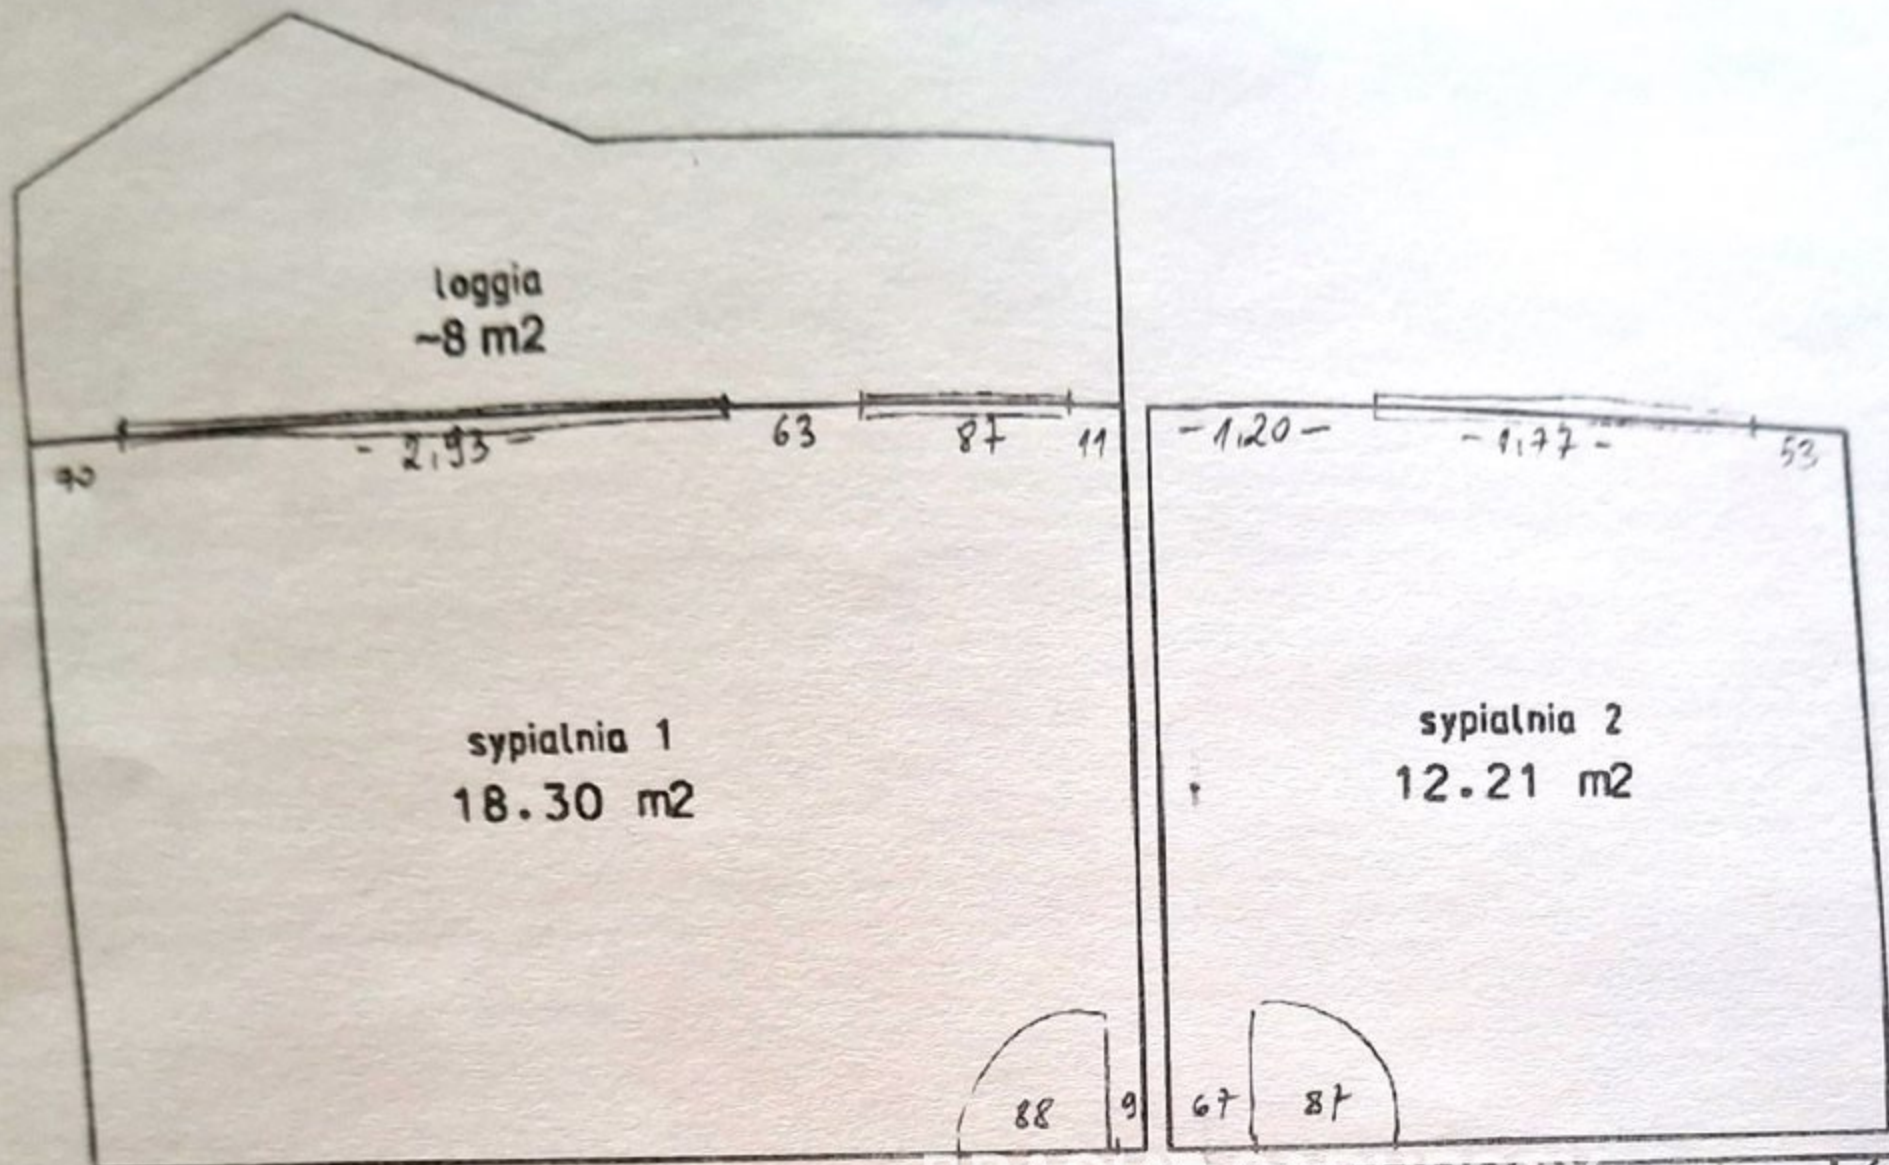 loggia
~8 m2
- 2,93 -
63
87
11
- 1,20 -
- 1,77 -
53
sypialnia 1
18.30 m2
sypialnia 2
12.21 m2
88
9
67
87